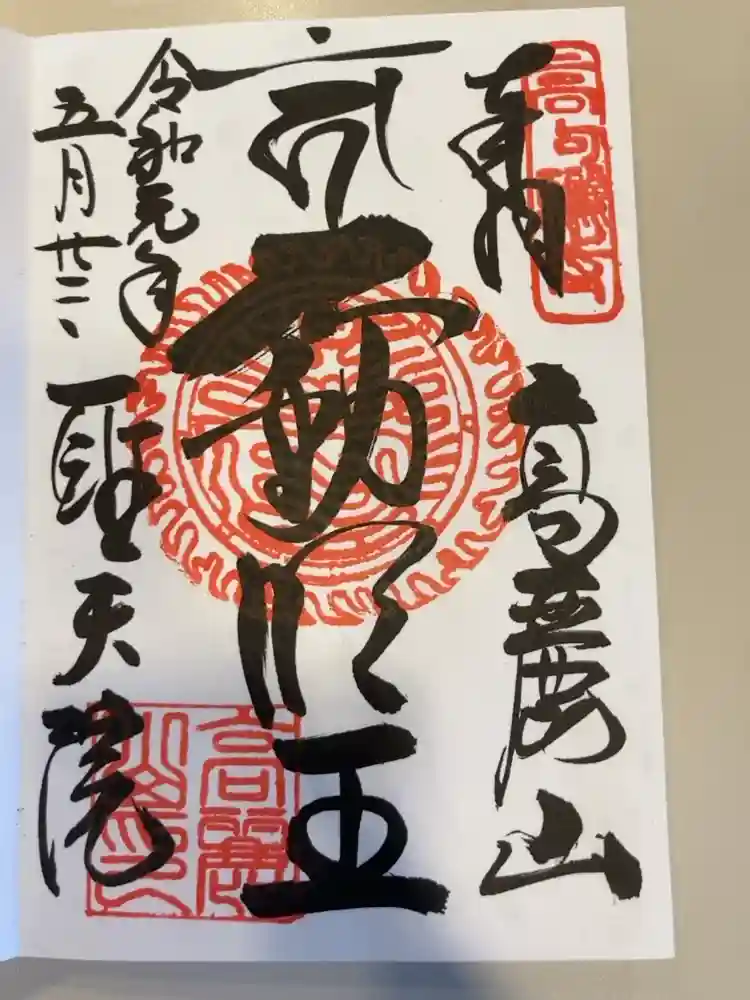 奉拝
高麗山
不動明王
令和元年
五月廿二日
聖天院